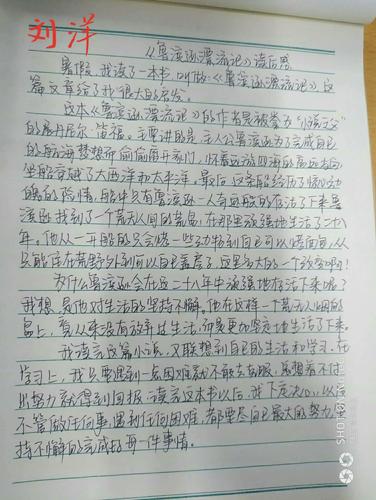 刘洋
《鲁滨逊漂流记》读后感
暑假,我读了一本书,叫做《鲁滨逊漂流记》,这
篇文章给了我很大的启发。
这本《鲁滨逊漂流记》的作者是被誉为"小说之父"
的丹尼尔·笛福。主要讲的是:主人公鲁滨逊为了完成自己
的航海梦想而偷偷离开家门,怀着远游四海的高远志向
坐船穿越了大西洋和太平洋。最后,这条船经历了惊心动
魄的险情,船中只有鲁滨逊一人奇迹般的存活了下来,鲁
滨逊找到了个荒无人烟的荒岛,在那里顽强地生活了二十八
年。他从一开始的只会
为什么鲁滨逊会在这二十八年中顽强地存活下来呢?
我想是他对生活的坚持不懈。他在这样一个荒无人烟的
岛上,看从来没有放弃过生活,而是更加坚定地生活了下来。
我读完这篇小说,又联想到自己的生活和学习。在
学习上,我只要遇到一点困难就不敢去克服,总想着不付
出努力就得到回报,读完这本书以后,我下定决心,以后
不管做任何事,遇到任何困难,都要尽自己最大的努力坚
持不懈的完成好每一件事情。
SHOT ON